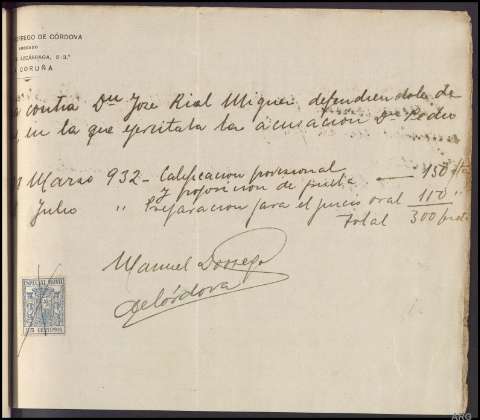 ORREGO DE CÓRDOVA
ABOGADO
AZCÁRRAGA, 8-3.º
CORUÑA
contra Dn José Rial Miguéi defendiendole de
en la que ejercitaba la acusación Dn Pedro
Marzo 932 - Calificación provisional
y proposición de prueba — 150 ptas
Julio " Preparación para el juicio oral 110 "
Total 300 ptas
Manuel Dorrego
de Córdova
ESPECIAL MÓVIL
CÉNTIMOS